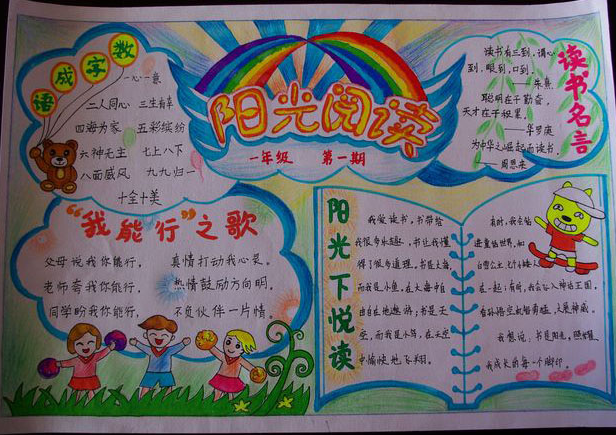 数字成语
一心一意
二人同心 三生有幸
四海为家 五彩缤纷
六神无主 七上八下
八面威风 九九归一
十全十美
阳光阅读
一年级 第一期
读书名言
读书有三到,谓心
到,眼到,口到。
——朱熹
聪明在于勤奋,
天才在于积累。
——华罗庚
为中华之崛起而读书。
——周恩来
“我能行”之歌
父母说我你能行, 真情打动我心灵。
老师夸我你能行, 热情鼓励方向明。
同学盼我你能行, 不负伙伴一片情。
阳光下悦读
我爱读书,书带给
我很多乐趣,书让我懂
得了很多道理。书是大海,
而我是小鱼,在大海中自
由自在地遨游;书是天
空,而我是小鸟,在天空
中愉快地飞翔。
有时,我会钻
进童话世界,和
白雪公主、七个小矮人
在一起;有时,我会进入神话王国,
看孙悟空大显神威。
我想说:书是阳光,照耀着
我成长的每一个脚印。